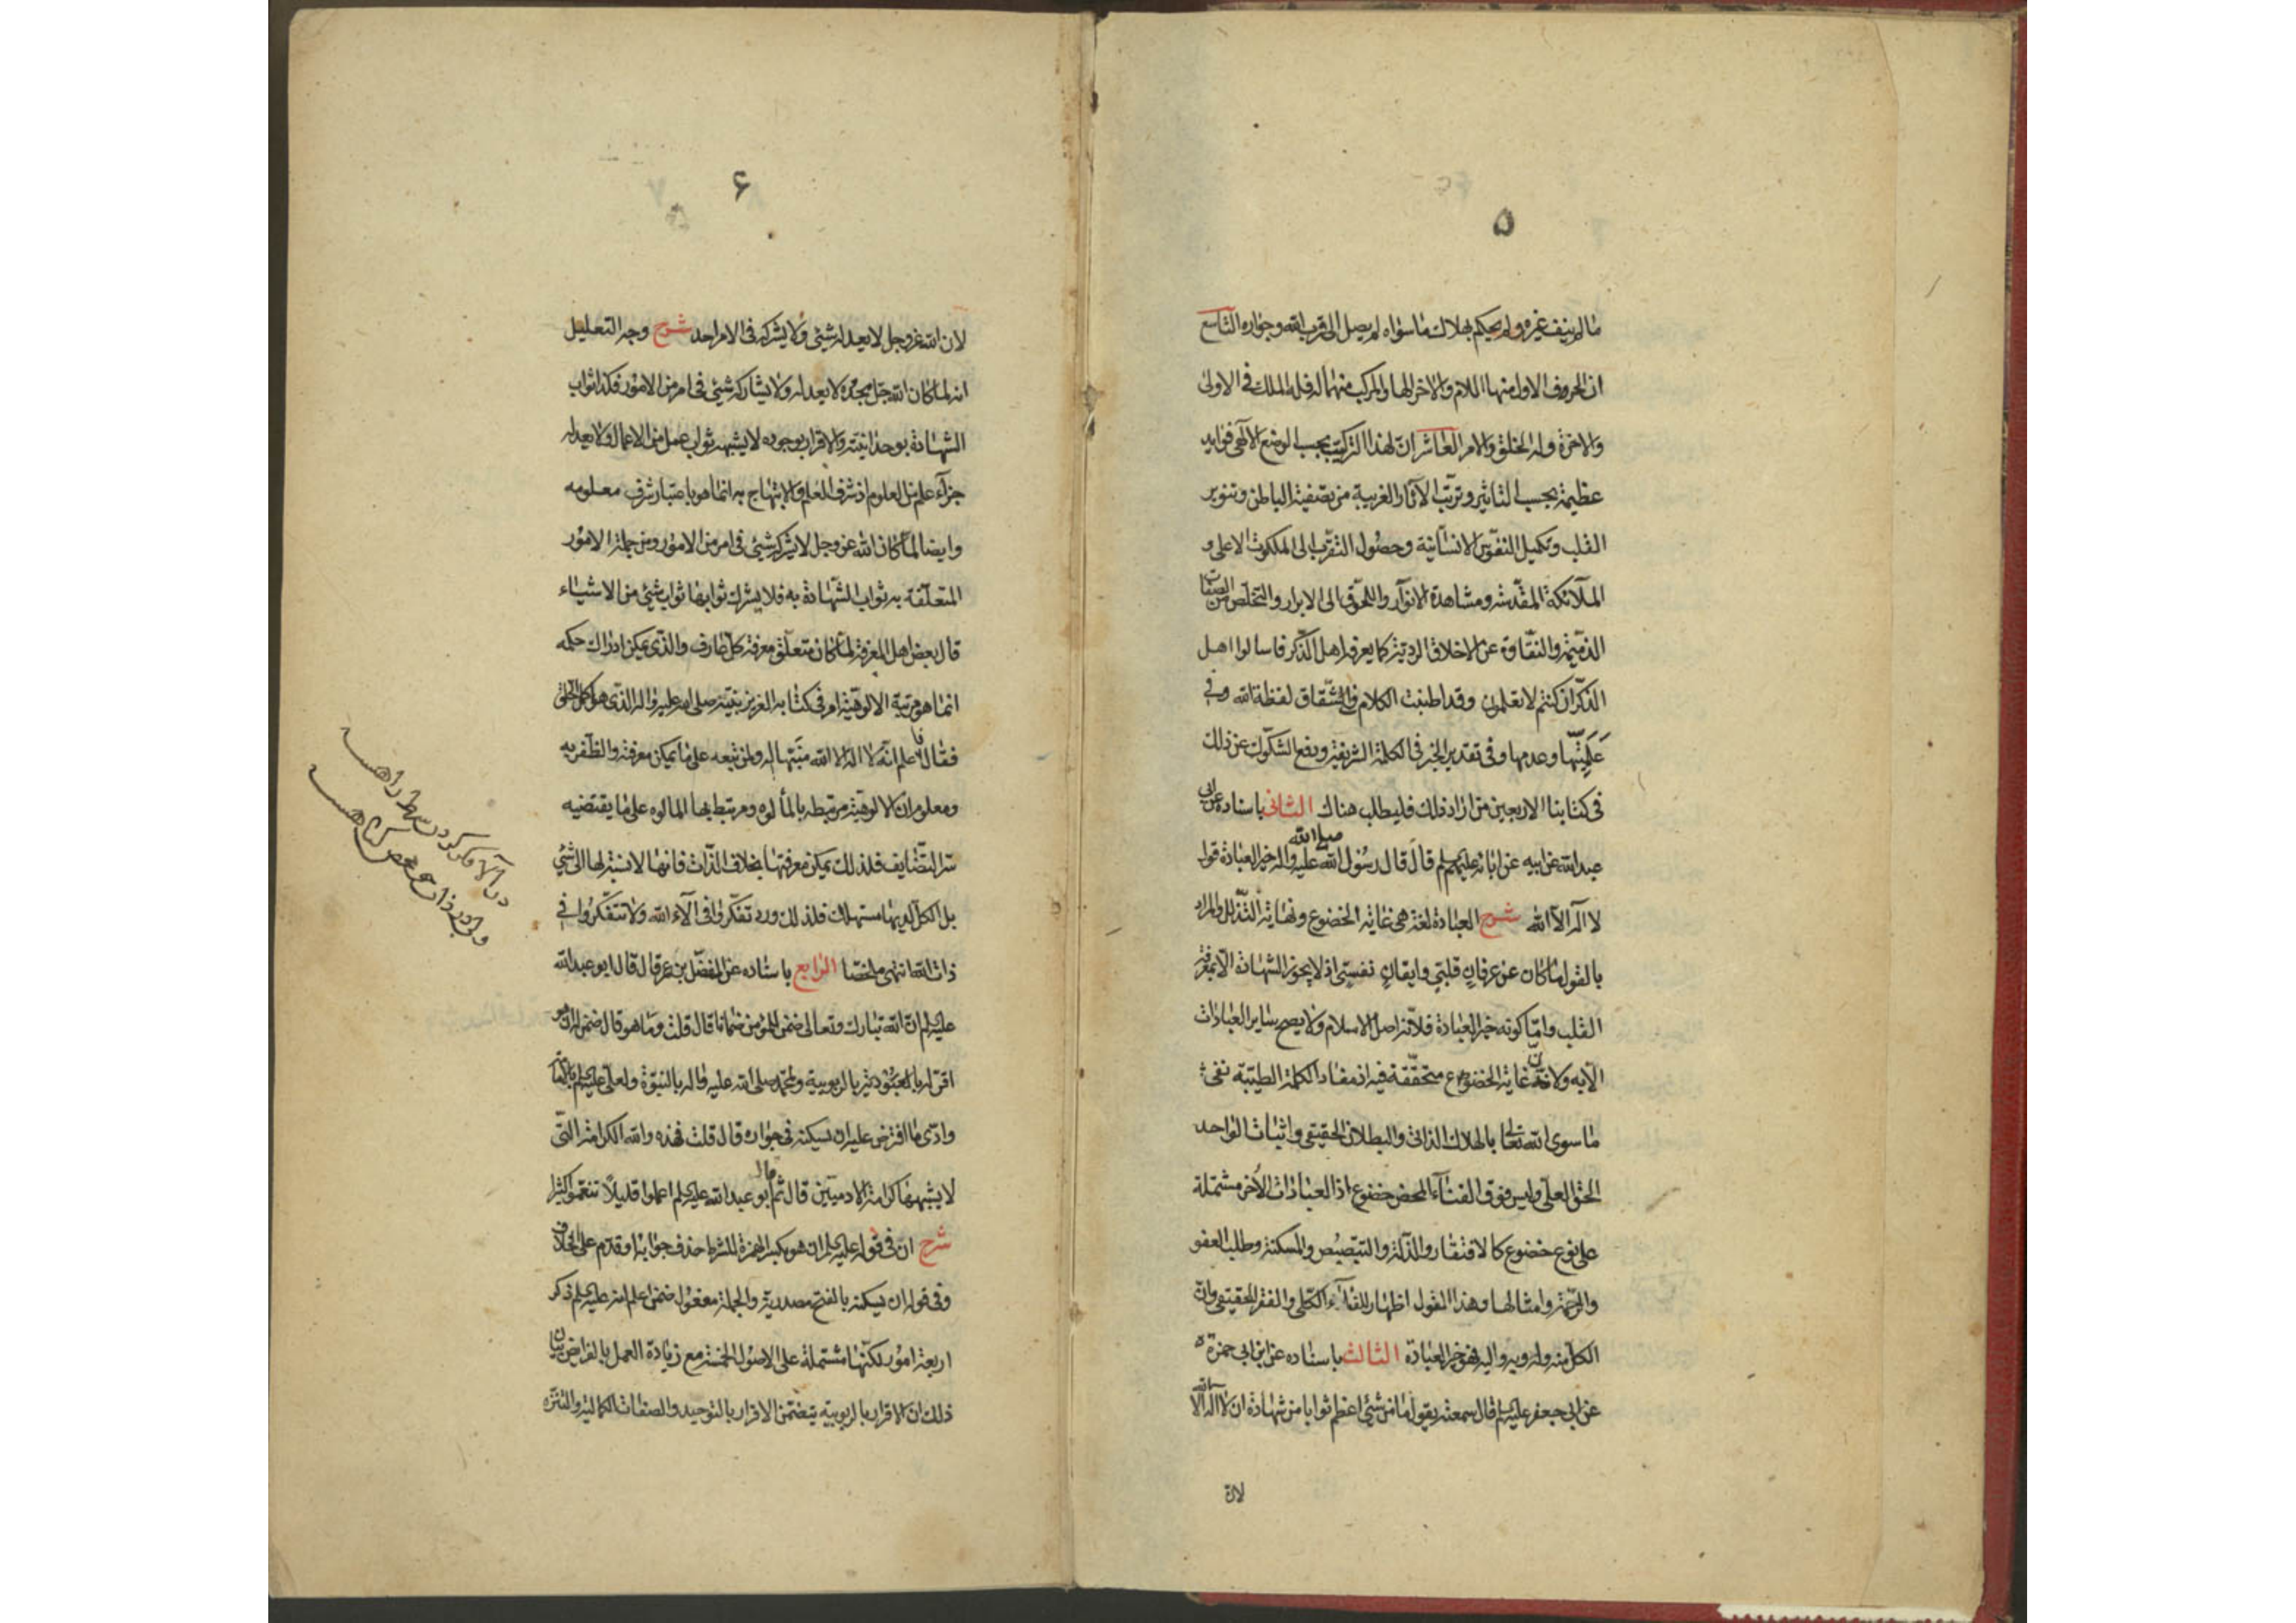 ۵
ما لم ينف غيره ولم يحكم بهلاك ما سواه لم يصل الى قرب الله وجواره التاسع
ان الحروف الاول منها اللام والاخر الها والمركب منهما له فله الملك فى الاولى
والاخرة وله الخلق والامر العاشر ان لهذا التركيب بحسب الوضع الآلهى فوايد
عظيمة بحسب التاثير وترتب الآثار الغريبة من تصفية الباطن وتنوير
القلب وتكميل النفوس الانسانية وحصول التقرب الى الملكوت الاعلى و
الملآئكة المقدسة ومشاهدة الانوار واللحوق الى الابرار والتخلص من الصفات
الذميمة والنقاوة عن الاخلاق الردية كما يعرفه اهل الذكر فاسالوا اهل
الذكر ان كنتم لا تعلمون وقد اطنبت الكلام فى اشتقاق لفظة الله وفى
عَلَمِيّتها وعدمها وفى تقدير الخبر فى الكلمة الشريفة ودفع الشكوك عن ذلك
فى كتابنا الاربعين من اراد ذلك فليطلب هناك الثانى باسناده عن ابى
عبد الله عن ابيه عن ابائه عليهم السلم قال قال رسول الله صلى الله عليه واله خير العبادة قول
لا آله الا الله شرح العبادة لغة هى غاية الخضوع ونهاية التذلل والمراد
بالقول ما كان عن عرفانٍ قلبىٍ وايقانٍ نفسىٍ اذ لا يجوز الشهادة الا بمعرفة
القلب وامّا كونه خير العبادة فلانه اصل الاسلام ولا يصح ساير العبادات
الا به ولانّ غاية الخضوع متحققة فيه اذ مفاد الكلمة الطيبة نفى
ما سوى الله تعالى بالهلاك الذاتى والبطلان الحقيقى واثبات الواحد
الحق العلى وليس فوق الفناء المحض خضوع اذ العبادات الأخر مشتملة
على نوع خضوع كالافتقار والذلة والتبصبص والمسكنة وطلب العفو
والرحمة وامثالها وهذا القول اظهار للفناء الكلى والفقر الحقيقى وانّ
الكل منه وله وبه واليه فهو خير العبادة الثالث باسناده عن ابن ابى حمزة
عن ابى جعفر عليه السلم قال سمعته يقول ما من شئ اعظم ثوابا من شهادة ان لا اله الا الله
لان
۶
لان الله عز وجل لا يعدله شئ ولا يشركه فى الامر احد شرح وجه التعليل
انه لما كان الله جل مجده لا يعدله ولا يشاركه شئ فى امر من الامور فكذا ثواب
الشهادة بوحدانيته والاقرار بوجوده لا يشبهه ثواب عمل من الاعمال ولا يعدله
جزآء علم من العلوم اذ شرف العلم والابتهاج به انما هو باعتبار شرف معلومه
وايضا لما كان الله عز وجل لا يشركه شئ فى امر من الامور ومن جملة الامور
المتعلقة به ثواب الشهادة به فلا يشرك ثوابها ثواب شئ من الاشياء
قال بعض اهل المعرفة لما كان متعلق معرفة كل عارف والذى يمكن ادراك حكمه
انما هو مرتبة الالوهية امر فى كتابه العزيز نبيّه صلى الله عليه واله الذى هو اكمل الخلق
فقال فاعلم انه لا اله الا الله منبّها له ولمن تبعه على ما يمكن معرفته والظفر به
ومعلوم ان الالوهية مرتبطه بالمألوه ومرتبط بها المالوه على ما يقتضيه
سر التضايف فلذلك يمكن معرفتها بخلاف الذات فانها لا نسبة لها الى شئ
بل الكل لديها مستهلك فلذلك ورد تفكروا فى آلاء الله ولا تتفكروا فى
ذات الله انتهى ملخصا الرابع باسناده عن المفضل بن عمر قال قال ابو عبد الله
عليه السلم ان الله تبارك وتعالى ضمن للمؤمن ضمانا قال قلت وما هو قال ضمن له ان هو
اقر له بالعبودية بالربوبية ولمحمد صلى الله عليه واله بالنبوة ولعلى عليه السلم بالامامة
وادى ما افترض عليه ان يسكنه فى جواره قال قلت فهذه والله الكرامة التى
لا يشبهها كرامة الادميين قال ثم قال ابو عبد الله عليه السلم اعملوا قليلاً تنعموا كثيرا
شرح ان فى قوله عليه السلم ان هو بكسر الهمزة للشرط حذف جوابه او قدم على الخلاف
وفى قوله ان يسكنه بالفتح مصدرية والجملة مفعول ضمن اعلم انه عليه السلم ذكر
اربعة امور لكنها مشتملة على الاصول الخمسة مع زيادة العمل بالفرايض بيان
ذلك ان الاقرار بالربوبية يتضمن الاقرار بالتوحيد والصفات الكمالية والتنزه